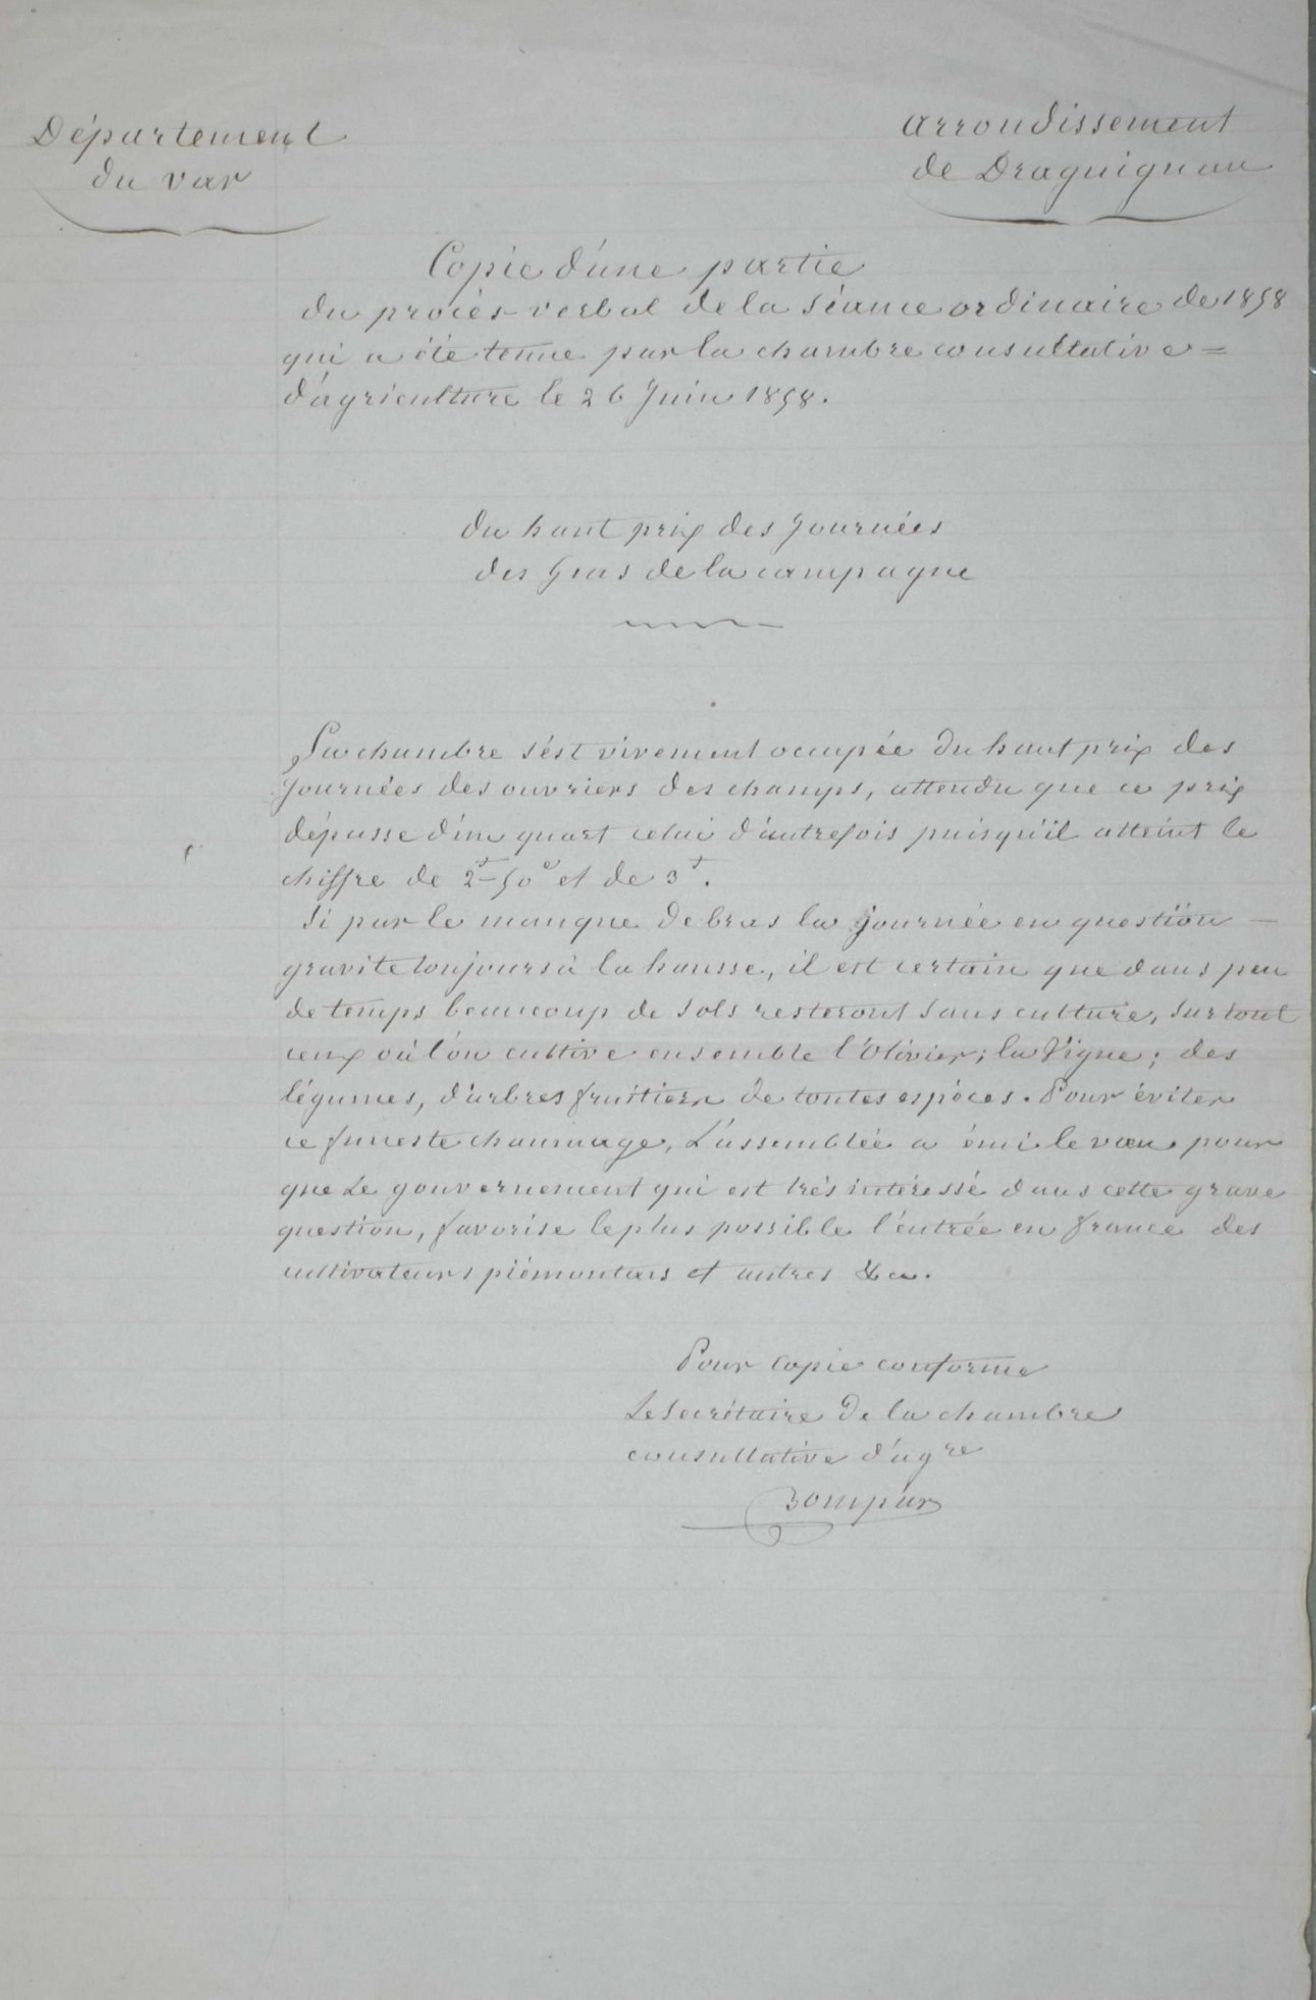 Département
du var
arrondissement
de Draguignan
Copie d'une partie
du procès-verbal de la séance ordinaire de 1858
qui a été tenue par la chambre consultative =
d'agriculture le 26 Juin 1858.
du haut prix des journées
des gens de la campagne
La chambre s'est vivement occupée du haut prix des
journées des ouvriers des champs, attendu que ce prix
dépasse d'un quart celui d'autrefois puisqu'il atteint le
chiffre de 2f-50c et de 3f.
Si par le manque de bras la journée en question -
gravite toujours à la hausse, il est certain que dans peu
de temps beaucoup de sols resteront sans culture, surtout
ceux où l'on cultive ensemble l'Olivier; la Vigne; des
légumes, d'arbres fruitiers de toutes espèces. Pour éviter
ce funeste chaumage, L'assemblée a émi le vœu pour
que Le gouvernement qui est très intéressé dans cette grave
question, favorise le plus possible l'entrée en france des
cultivateurs piémontais et autres &ca.
Pour copie conforme
Le secrétaire de la chambre
consultative d'agre
Bompar